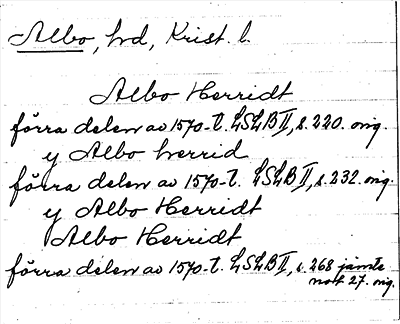 Albo, hd, Krist. l.
Albo Herridt
förra delen av 1570-t. LSLB II, s. 220. orig.
y Albo herrid
förra delen av 1570-t. LSLB II, s. 232. orig.
y Albo Herridt
Albo Herridt
förra delen av 1570-t. LSLB II, s. 268 jämte
not 27. orig.